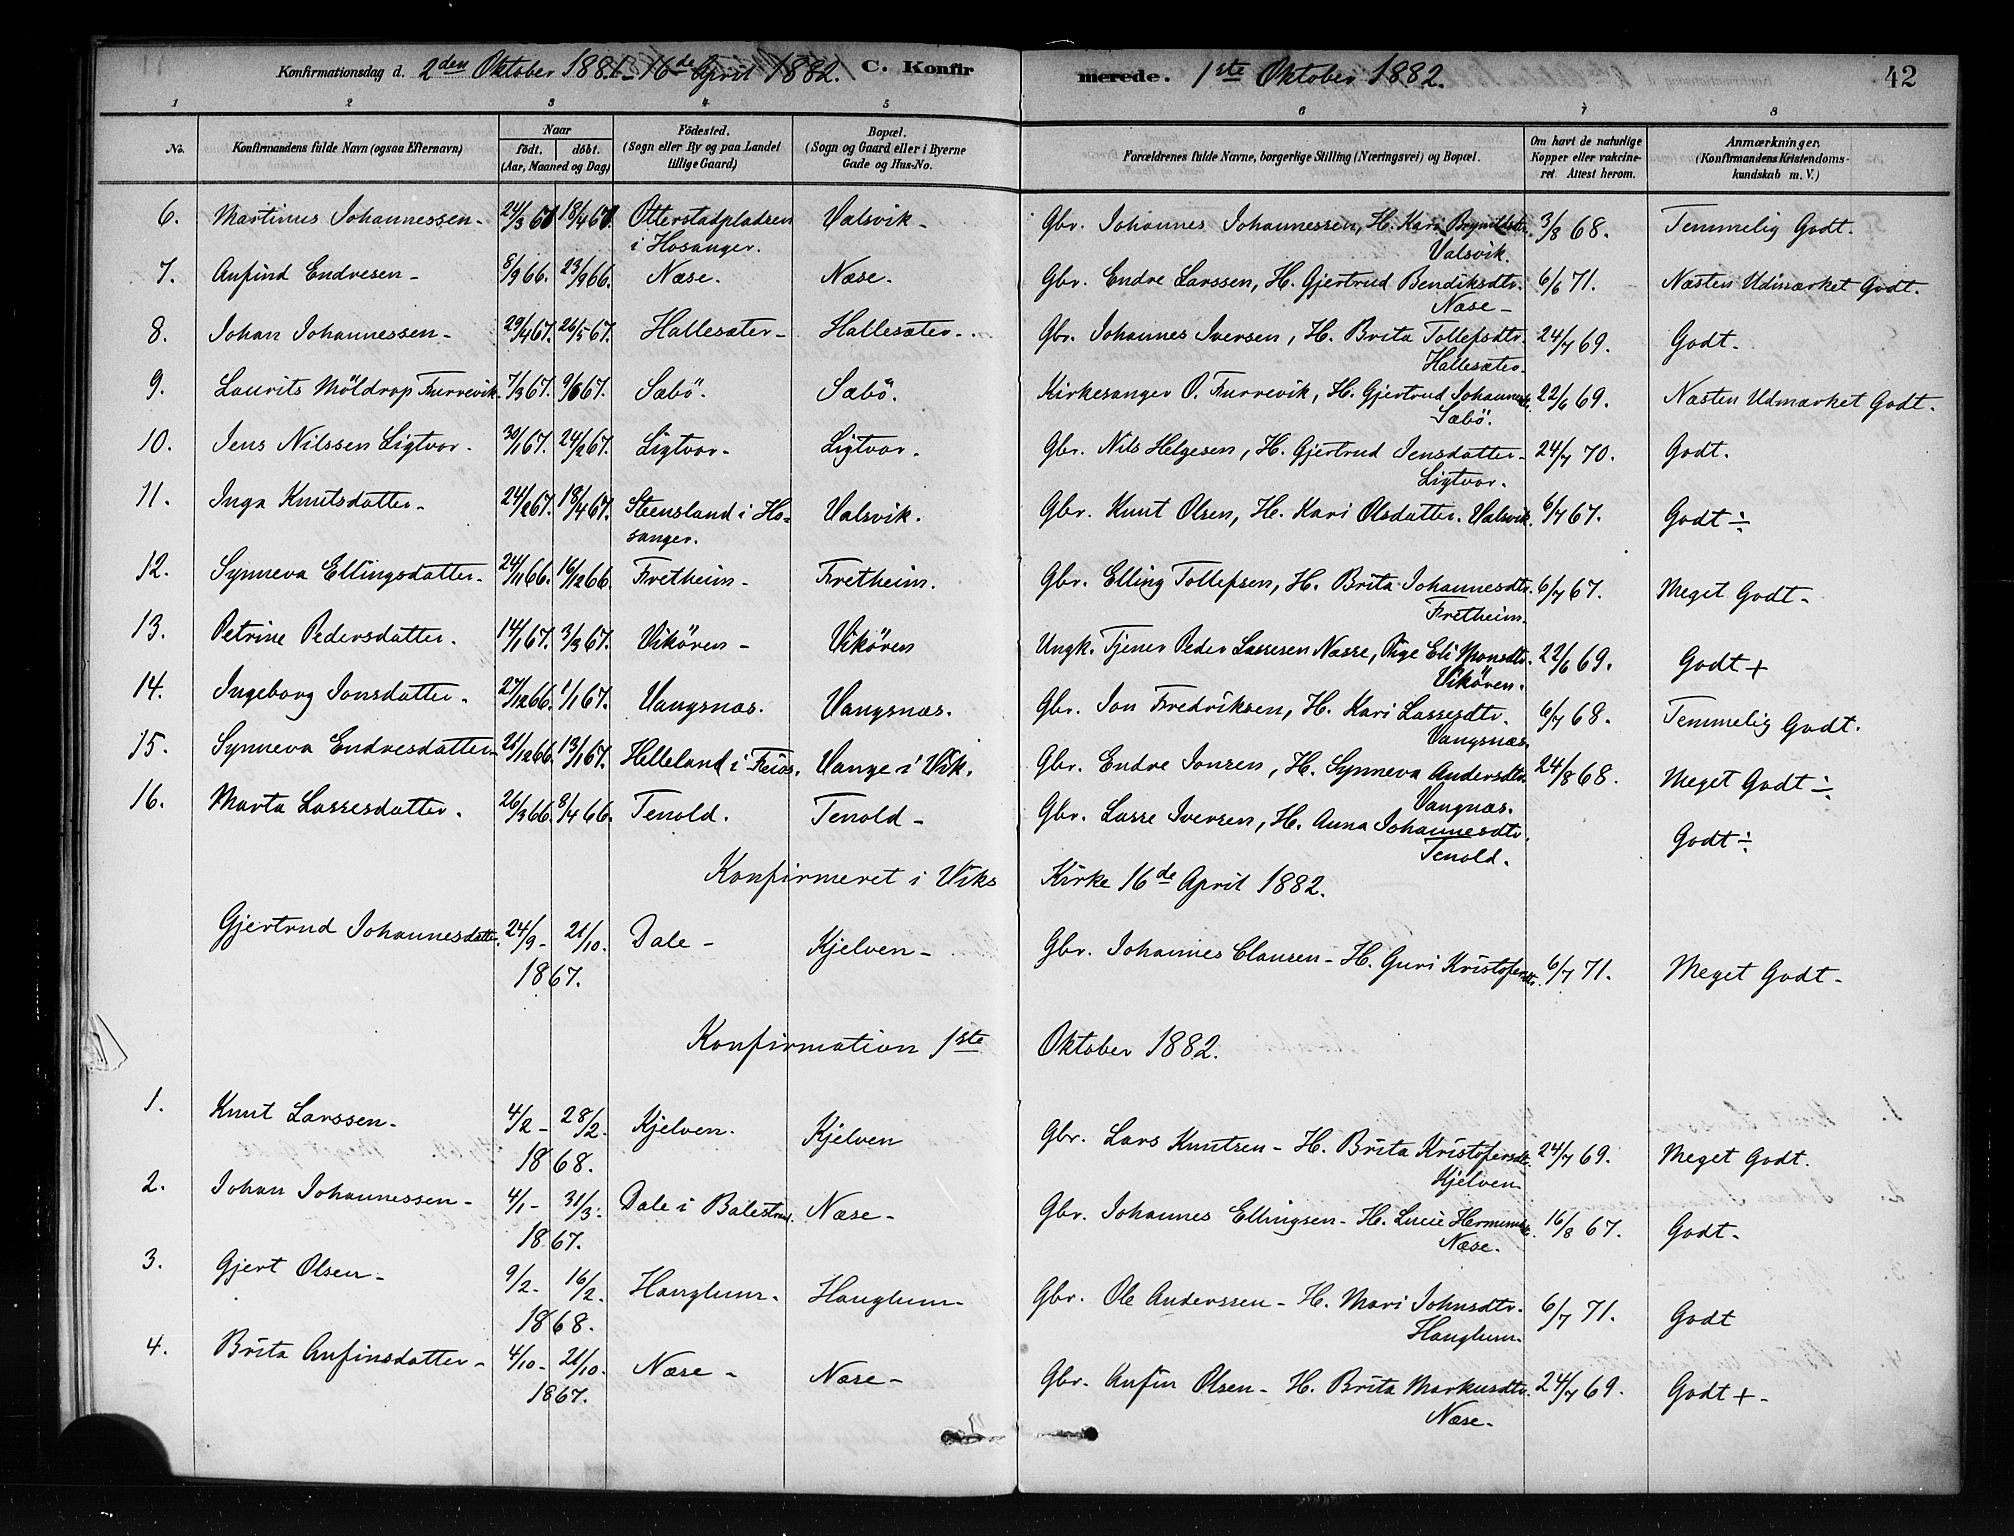 Konfirmationsdag d. 2den Oktober 1881 - 16de April 1882. C. Konfirmerede. 1ste Oktober 1882. 42
1 2 3 4 5 6 7 8
No. Konfirmandens fulde Navn (ogsaa Efternavn) Naar født. døbt. (Aar, Maaned og Dag) Födested. (Sogn eller By og paa Landet tillige Gaard) Bopæl. (Sogn og Gaard eller i Byerne Gade og Hus-No. Forældrenes fulde Navne, borgerlige Stilling (Næringsvei) og Bopæl. Om havt de naturlige Kopper eller vakcineret. Attest herom. Anmærkninger. (Konfirmandens Kristendomskundskab m. V.)
6. Martinus Johannessen - 24/3 67 18/4 67. Otterstadpladsen Valsvik - Gbr. Johannes Johannessen, H. Kari Bryn 3/8 68. Temmelig Godt.
i Hosanger. Valsvik.
7. Anfind Endresen - 8/9 66. 23/9 66. Næse. Næse. Gbr. Endre Larssen, H. Gjertrud Bendiksdtr. 6/6 71. Næsten Udmærket Godt.
Næse -
8. Johan Johannessen - 29/4 67. 26/5 67. Hallesæter - Hallesæter - Gbr. Johannes Iversen, H. Brita Tollefsdtr. 24/7 69. Godt -
Hallesæter -
9. Laurits Möldrop Furrevik. 7/3 67. 9/6 67. Sæbö. Sæbö. Kirkesanger O. Furrevik, H. Gjertrud Johannesdtr. 22/6 69. Næsten Udmærket Godt.
Sæbö.
10. Jens Nilssen Ligtvor - 30/1 67. 24/2 67. Ligtvor - Ligtvor. Gbr. Nils Helgesen, H. Gjertrud Jensdatter - 24/7 70. Godt.
Ligtvor.
11. Inga Knutsdatter - 24/2 67. 18/4 67. Steensland i Ho- Valsvik. Gbr. Knut Olsen, H. Kari Olsdatter. Valsvik. 6/7 67. Godt ÷
sanger.
12. Synneva Ellingsdatter - 24/11 66. 16/12 66. Fretheim - Fretheim. Gbr. Elling Tollefsen, H. Brita Johannesdtr. 6/7 67. Meget Godt -
Fretheim.
13. Petrine Pedersdatter. 14/1 67. 3/3 67. Vikören - Vikören Ungk. Tjener Peder Lassesen Næse, Pige Eli Monsdtr. 22/6 69. Godt +
Vikören.
14. Ingeborg Jonsdatter. 27/12 66. 1/1 67. Vangsnæs. Vangsnæs. Gbr. Jon Fredriksen, H. Kari Lassesdtr. 6/7 68. Temmelig Godt.
Vangsnæs.
15. Synneva Endresdatter 21/12 66. 13/1 67. Helleland i Feios. Vange i Vik. Gbr. Endre Jonsen, H. Synneva Andersdtr. 24/8 68. Meget Godt ÷
Vangnæs.
16. Marta Lassesdatter. 26/3 66. 8/4 66. Tenold. Tenold - Gbr. Lasse Iversen, H. Anna Johannesdtr. Godt ÷
Tenold.
Konfirmeret i Viks Kirke 16de April 1882.
Gjertrud Johannesdatter. 24/9 - 21/10. Dale - Kjelven - Gbr. Johannes Clausen - H. Guri Kristofersdtr. 6/7 71. Meget Godt -
1867.
Konfirmation 1ste Oktober 1882.
1. Knut Larssen - 4/2 - 28/2. Kjelven. Kjelven Gbr. Lars Knutsen - H. Brita Kristofersdtr. 24/7 69. Meget Godt.
1868. Kjelven
2. Johan Johannessen - 4/1 - 31/3. Dale i Balestrand. Næse - Gbr. Johannes Ellingsen - H. Lucie 16/8 67. Godt -
1867. Næse.
3. Gjert Olsen - 9/2 - 16/2. Hanglum - Hanglum - Gbr. Ole Anderssen - H. Mari Johnsdtr. 6/7 71. Godt
1868. Hanglum -
4. Brita Anfinsdatter - 4/10 - 21/10. Næse - Næse - Gbr. Anfin Olsen - H. Brita Markusdtr. 24/7 69. Godt + -
1867. Næse -